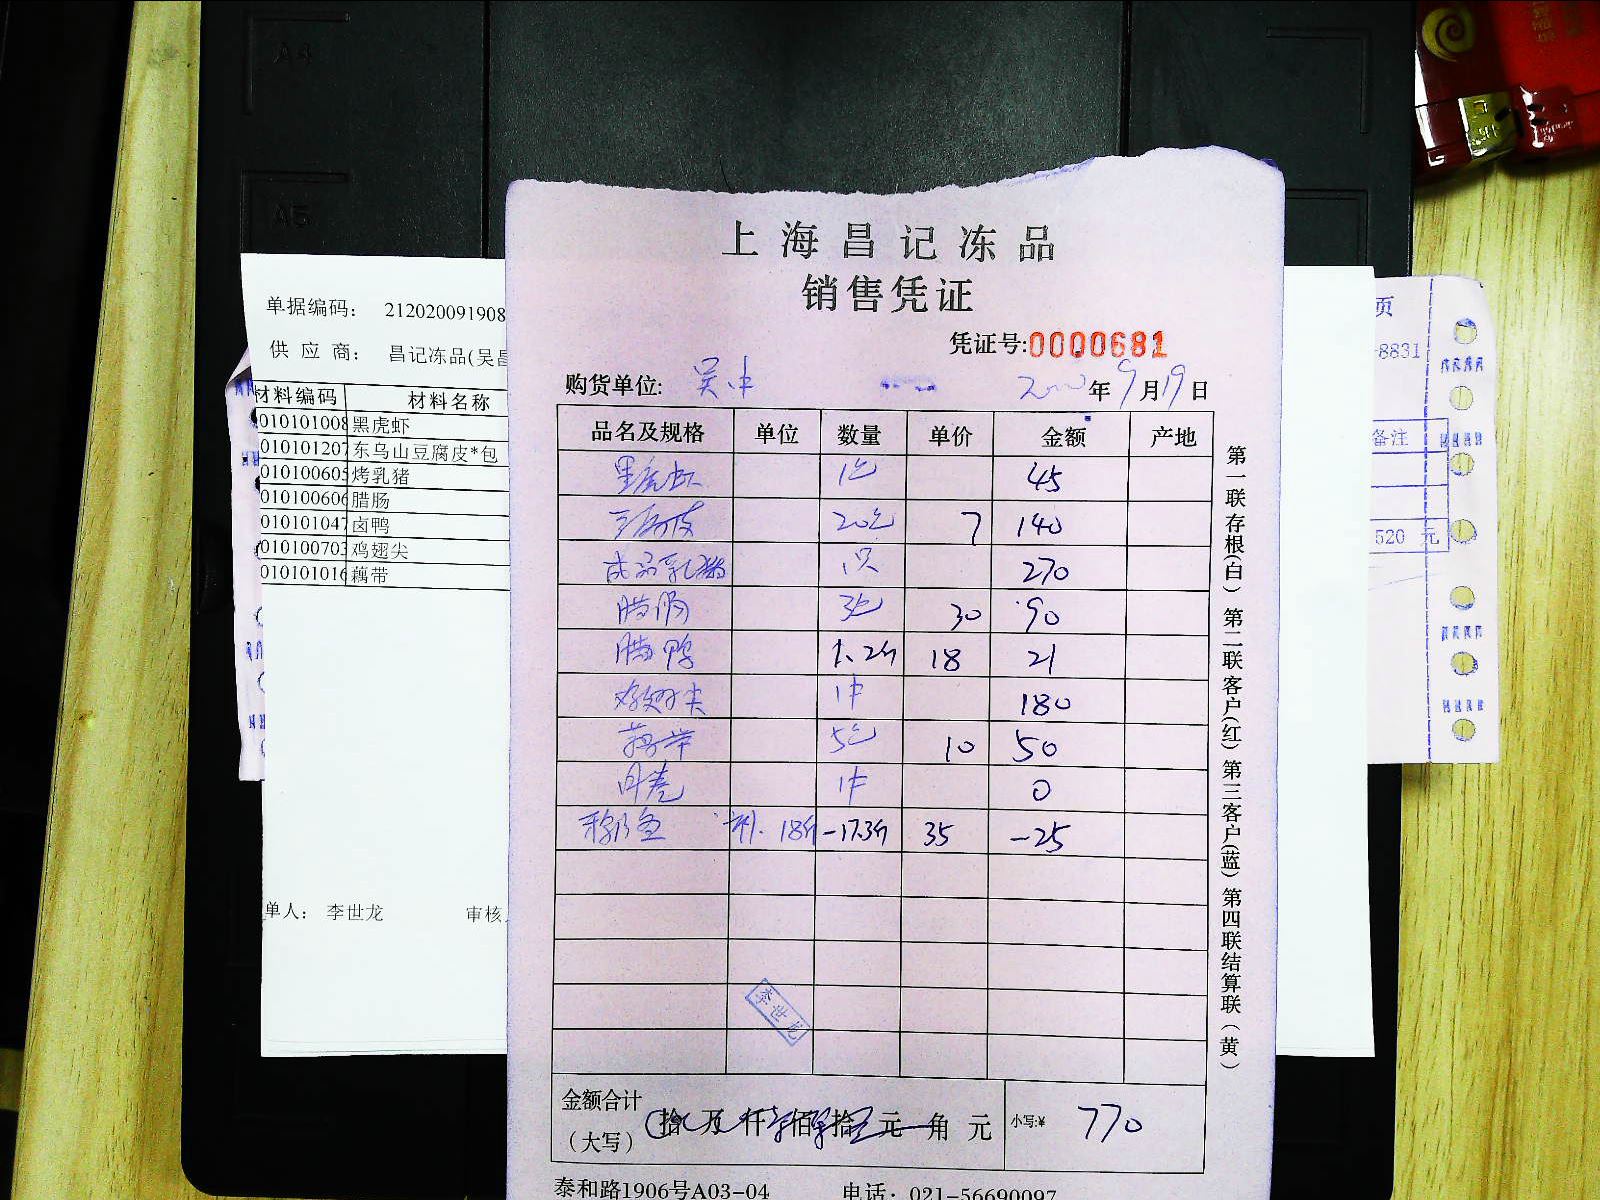 A4
A5
上海昌记冻品
销售凭证
凭证号:0000681
购货单位: 吴中 年9月19日
品名及规格 单位 数量 单价 金额 产地
黑虎虾 1包 45
豆腐皮 20包 7 140
成品乳猪 1只 270
腊肠 3包 30 90
腊鸭 1.2斤 18 21
鸡翅尖 1件 180
藕带 5包 10 50
1件 0
18斤 -17.3斤 35 -25
李世龙
金额合计
(大写) 拾 万 仟 佰 拾 元 角 元 小写:¥ 770
泰和路1906号A03-04 电话: 021-56690097
第一联存根(白) 第二联客户(红) 第三客户(蓝) 第四联结算联(黄)
单据编码: 212020091908
供应商: 昌记冻品(吴昌
材料编码 材料名称
010101008 黑虎虾
010101207 东乌山豆腐皮*包
010100605 烤乳猪
010100606 腊肠
010101047 卤鸭
010100703 鸡翅尖
010101016 藕带
单人: 李世龙 审核
页
-8831
备注
520 元